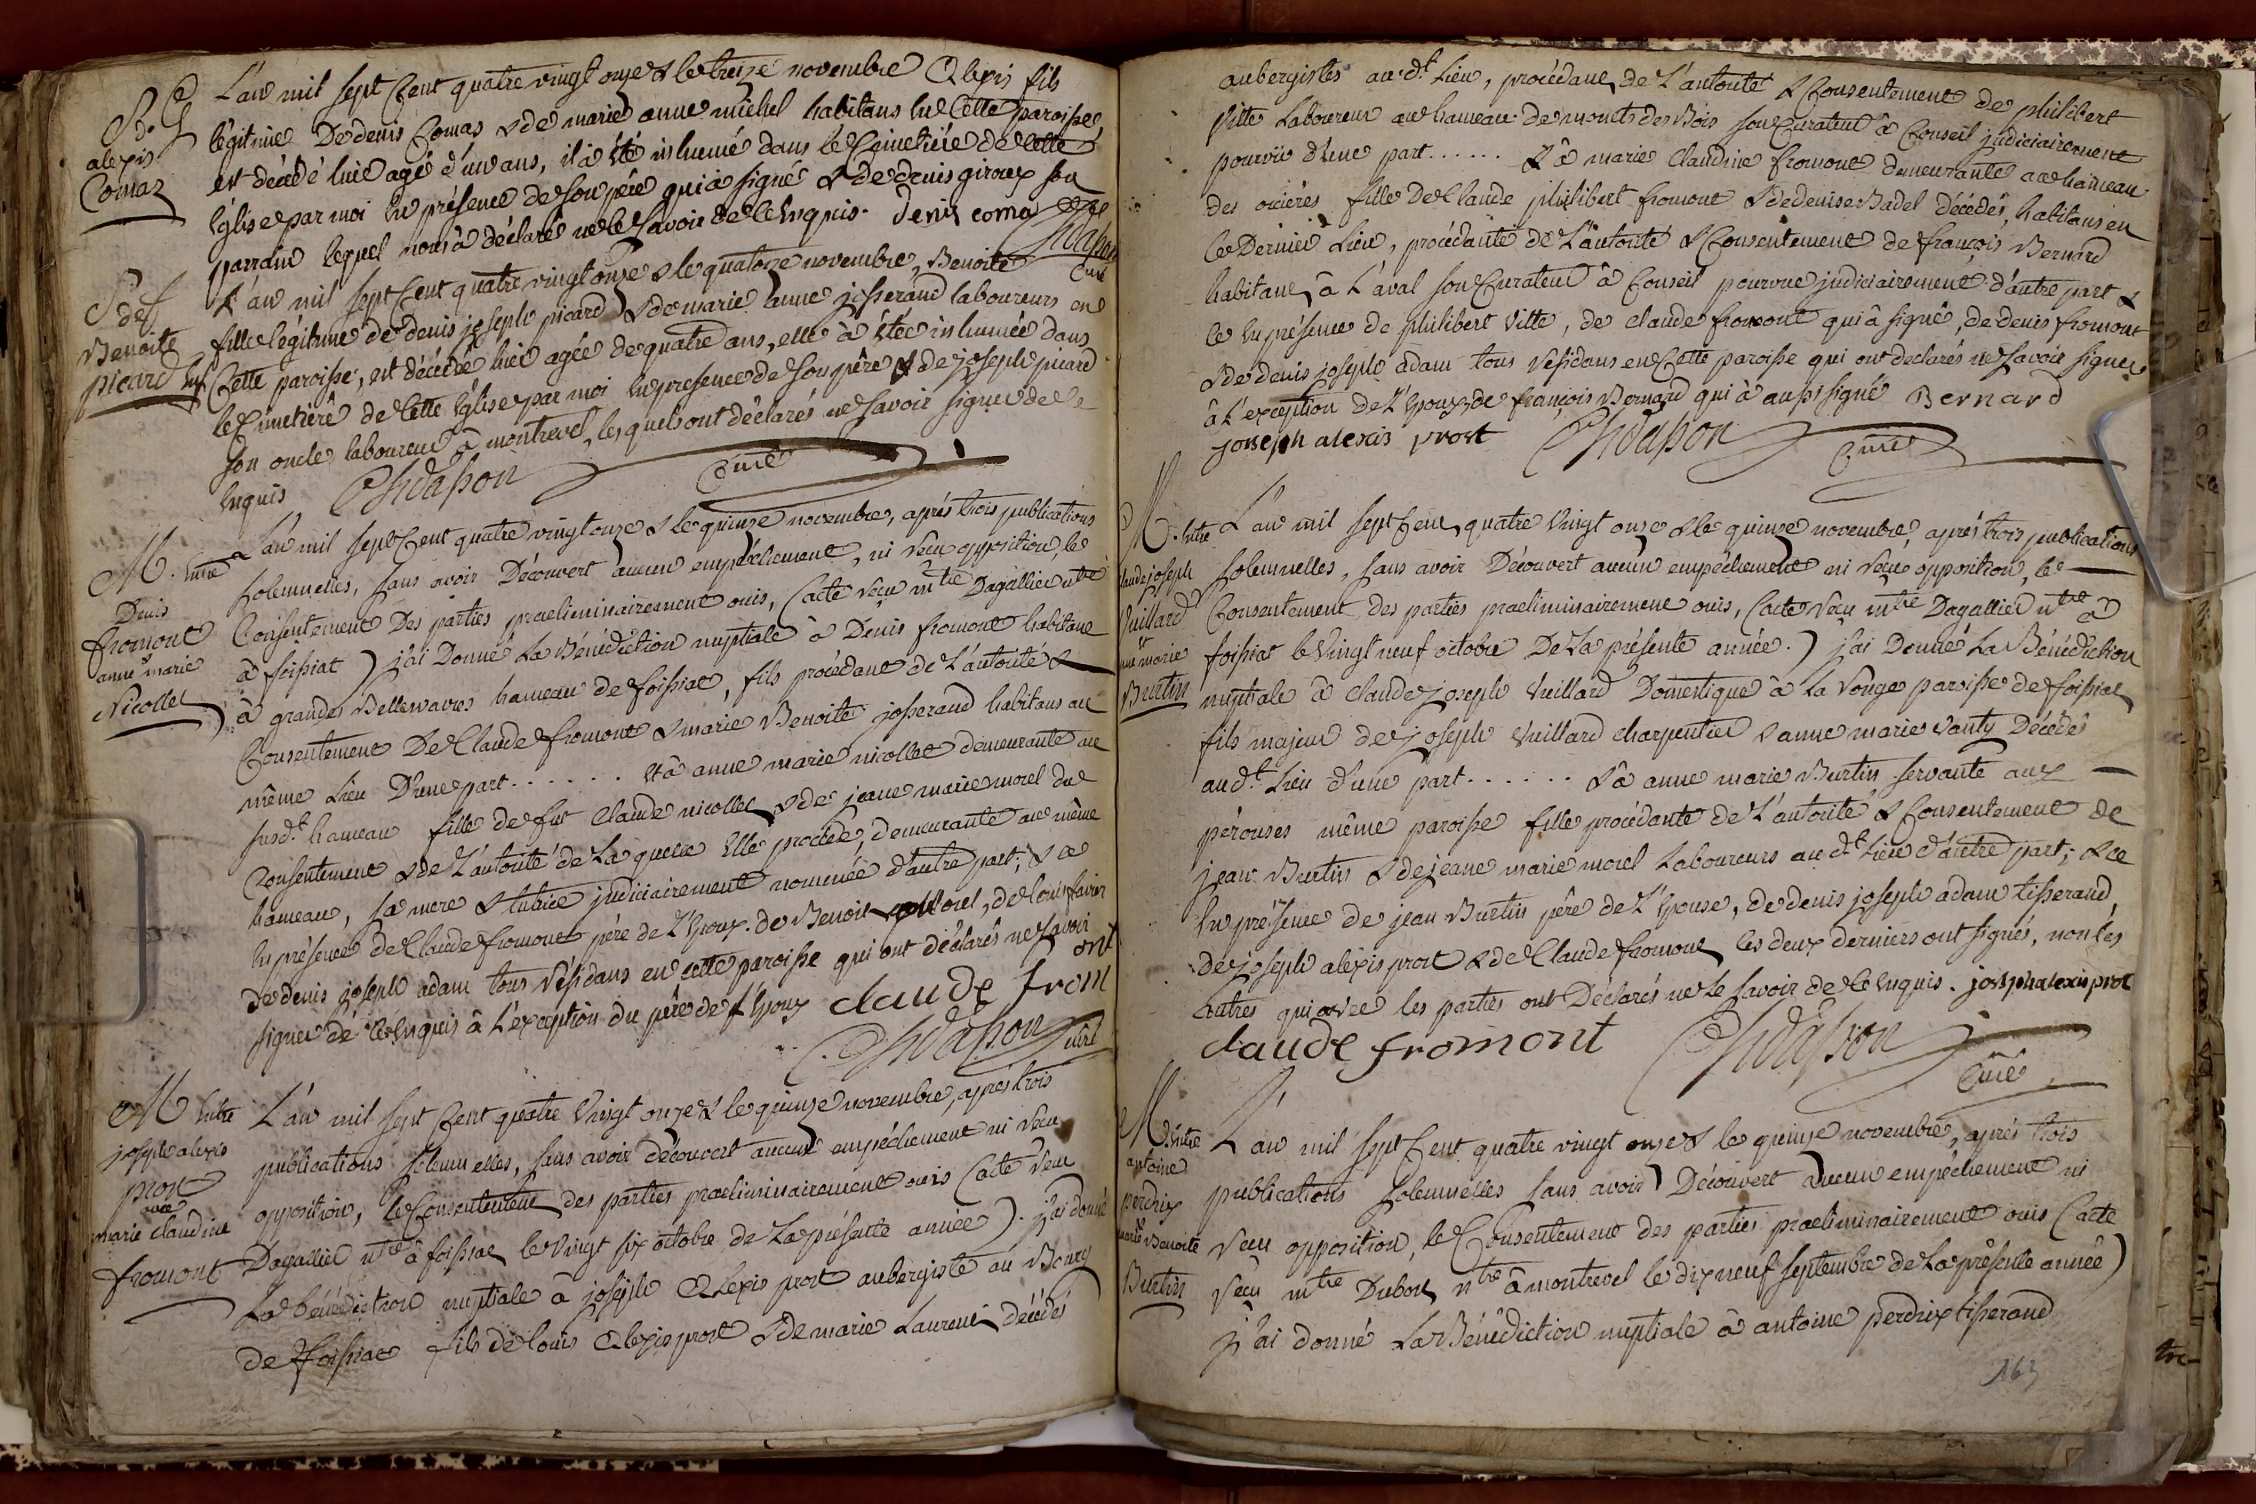 S.re
alexis
Comaz
L'an mil sept Cent quatre vingt onze & le treize novembre Alexis fils
légitime De denis Comas & de marie anne michel habitans En Cette paroisse
est décédé hier agé d'un ans, il à été inhumé dans le Cimetiére de Cette
Eglise par moi En présence de son pére qui à signé & de denis giroux son
parrain lequel nous à déclaré ne le savoir de Ce Enquis. Denis coma
Chdasson
Curé
S.re de
Benoite
picard
L'an mil sept Cent quatre vingt onze & le quatorze novembre, Benoite
fille légitime de denis joseph picard & de marie anne josserand laboureurs en
Cette paroisse, est décédée hier agée de quatre ans, elle à étée inhumée dans
le Cimetiére de Cette Eglise par moi En presence de son pére & de joseph picard
son oncle laboureur à montrevel, lesquels ont déclarés ne savoir signer de Ce
Enquis Chdasson Curé
M. Entre
Denis
fromont
&
anne marie
Nicollet
L'an mil sept Cent quatre vingt onze & le quinze novembre, aprés trois publications
solemnelles, sans avoir Découvert aucun empéchement, ni reçu opposition, le
Consentement Des parties praeliminairement ouis, (acte reçu mtre Dagallier ntre
à foissiat) j'ai Donné La Bénédiction nuptiale à Denis fromont habitant
à grandes Bellevavres hameau de foissiat, fils procédant de L'autorité &
Consentement De Claude fromont & marie Benoite josserand habitans au
même Lieu D'une part...... Et à anne marie nicollet demeurante au
susd.t hameau fille de fut Claude nicollet & de jeane marie morel du
Consentement & de L'autorité de Laquelle Elle procéde, demeurante au même
hameau, sa mere & tutrice judiciairement nommée d'autre part; & ce
En présence de Claude fromont pére de L'Epoux. de Benoit morel, de louis favier
de denis joseph adam tous résidans en cette paroisse qui ont déclarés ne savoir
signer de Ce Enquis à L'exception du pére de L'Epoux claude fromont
Chdasson curé
M Entre
joseph alexis
prost
&
marie claudine
fromont
L'an mil sept Cent quatre Vingt onze & le quinze novembre, aprés trois
publications solemnelles, sans avoir découvert aucun empéchement ni reçu
opposition, le Consentement des parties praeliminairement ouis (acte reçu
Dagallier ntre à foissiat le vingt six octobre de La présente année). j'ai donné
La bénédiction nuptiale à joseph Alexis prost aubergiste au Bourg
de foissiat fils de louis Alexis prost & de marie Laurent décédés
aubergistes au d.t Lieu, procédant de L'autorité & Consentement de philibert
Vitte Laboureur au hameau de monts des Bois son Curateur à Conseil judiciairement
pourvu d'une part...... & à marie Claudine fromont demeurante au hameau
des oriéres fille De Claude philibert fromont & de denise Badel décédés, habitans en
Ce Dernier Lieu, procédante de L'autorité & Consentement de françois Bernard
habitant à L'aval son Curateur à Conseil pourvue judiciairement d'autre part &
ce En présence de philibert Vitte, de claude fromont qui à signé, de denis fromont
& de denis joseph adam tous résidans en Cette paroisse qui ont declarés ne savoir signer
à L'exception de L'Epoux, de françois Bernard qui à aussi signé Bernard
joseph alexis prost Chdasson Curé
M. Entre
claude joseph
Vuillard
et
anne marie
Burtin
L'an mil sept Cent quatre Vingt onze & le quinze novembre, aprés trois publications
solemnelles, sans avoir Découvert aucun empéchement ni reçu opposition, le
Consentement des parties praeliminairement ouis, (acte reçu mtre Dagallier ntre à
foissiat le Vingt neuf octobre De La présente année.) j'ai Donné La Bénédiction
nuptiale à claude joseph Vuillard Domestique à La Vonge paroisse de foissiat
fils majeur de joseph Vuillard charpentier & anne marie Vanty Décédés
au d.t Lieu d'une part...... & à anne marie Burtin servante aux
pérouses même paroisse fille procédante de L'autorité & Consentement de
jean Burtin & de jeane marie morel Laboureurs au d.t Lieu d'autre part; & ce
En présence de jean Burtin pére de L'Epouse, de denis joseph adam tisserand,
de joseph alexis prost & de Claude fromont les deux derniers ont signés, non les
autres qui avec les parties ont Déclarés ne Le savoir de Ce Enquis. joseph alexis prost
claude fromont Chdasson Curé
M Entre
antoine
perdrix
&
marie Benoite
Burtin
L'an mil sept Cent quatre vingt onze & le quinze novembre, aprés trois
publications solemnelles sans avoir Découvert aucun empéchement ni
reçu opposition, le Consentement des parties praeliminairement ouis (acte
reçu mtre Dubost ntre à montrevel le dix neuf septembre de La présente année)
j'ai donné La Bénédiction nuptiale à antoine perdrix tisserand
163